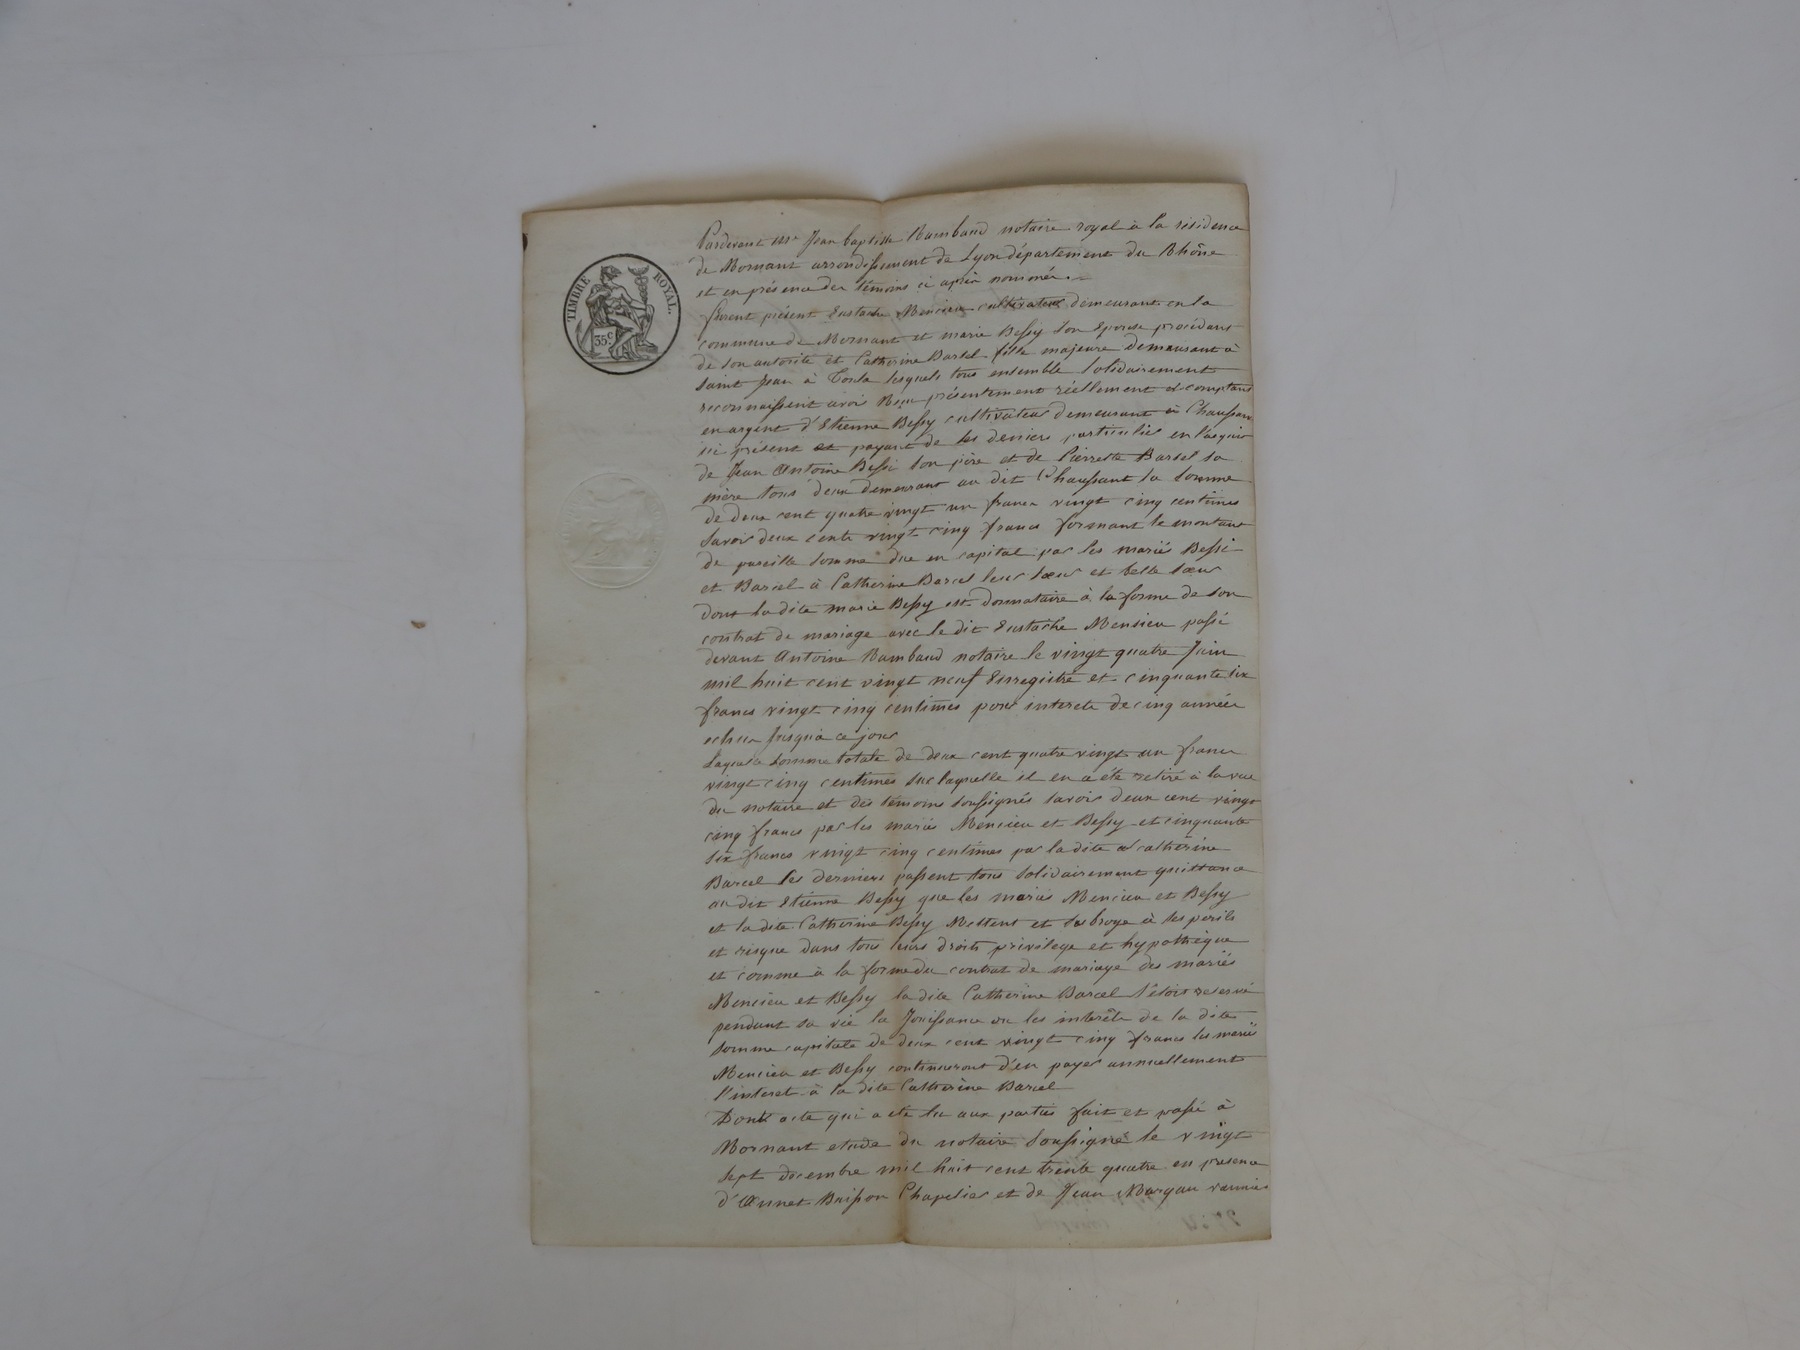 TIMBRE ROYAL.
35 c
Pardevant Me Jean baptiste Rambaud notaire royal à la résidence
de Mornant arrondissement de Lyon département du Rhône
et en présence des témoins ci après nommés.
furent présent Eustache Mencieu cultivateur demeurant en la
commune de Mornant et marie Bessy son Epouse procédant
de son autorité et Catherine Barcel fille majeure demeurant à
saint Jean à lesquels tous ensemble solidairement
reconnaissent avoir Reçu présentement réellement et comptant
en argent d'Etienne Bessy cultivateur demeurant à Chaussant
ici présent et payant de ses deniers particulier en l'acquit
de Jean Antoine Bessi son père et de Pierrette Barcel sa
mère tous deux demeurant au dit Chaussant la somme
de deux cent quatre vingt un francs vingt cinq centimes
savoir deux cents vingt cinq francs formant le montant
de pareille somme due en capital par les mariés Bessi
et Barcel à Catherine Barcel leur sœur et belle sœur
dont la dite marie Bessy est donnataire à la forme de son
contrat de mariage avec le dit Eustache Mencieu passé
devant Antoine Rambaud notaire le vingt quatre Juin
mil huit cent vingt neuf Enregistré et cinquante six
francs vingt cinq centimes pour interets de cinq années
echus Jusqu'à ce jour
Laquelle somme totale de deux cent quatre vingt un francs
vingt cinq centimes sur laquelle il en a été retiré à la vue
du notaire et des témoins soussignés savoir deux cent vingt
cinq francs par les mariés Mencieu et Bessy et cinquante
six francs vingt cinq centimes par la dite Catherine
Barcel les derniers passent tous solidairement quittance
au dit Etienne Bessy que les mariés Mencieu et Bessy
et la dite Catherine Bessy Mettent et subroge à ses perils
et risque dans tous leurs droits privilege et hypothèque
et comme à la forme du contrat de mariage des mariés
Mencieu et Bessy la dite Catherine Barcel s'étoit reservé
pendant sa vie la Jouissance ou les interêts de la dite
somme capitale de deux cent vingt cinq francs les mariés
Mencieu et Bessy continueront d'en payer annuellement
l'interet à la dite Catherine Barcel
Dont acte qui a été lu aux parties fait et passé à
Mornant etude du notaire soussigné le vingt
sept décembre mil huit cent trente quatre en presence
d'Annet Buisson Chapelier et de Jean Margau vannier